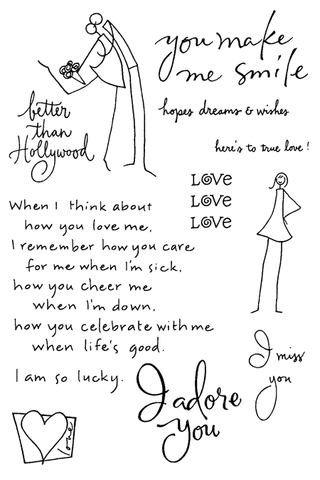 you make
me smile
better
than
Hollywood
hopes dreams & wishes
here's to true love!
LOVE
LOVE
LOVE
When I think about
how you love me,
I remember how you care
for me when I'm sick,
how you cheer me
when I'm down,
how you celebrate with me
when life's good.
I am so lucky.
I miss
you
I adore
you
love